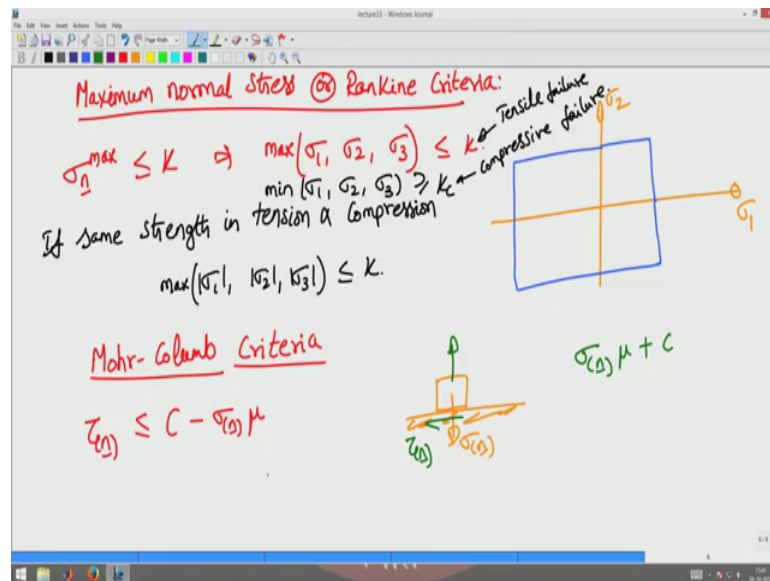 lecture33 - Windows Journal
File Edit View Insert Actions Tools Help
Page Width
B I
Maximum normal stress or Rankine Criteria:
σn^max ≤ K ⇒ max(σ1, σ2, σ3) ≤ K. ← Tensile failure
min (σ1, σ2, σ3) ≥ Kc ← compressive failure.
If same strength in tension & compression
max(|σ1|, |σ2|, |σ3|) ≤ K.
σ2
σ1
Mohr-Columb Criteria
τ(n) ≤ C - σ(n) μ
τ(n)
σ(n)
σ(n) μ + C
6/6
6